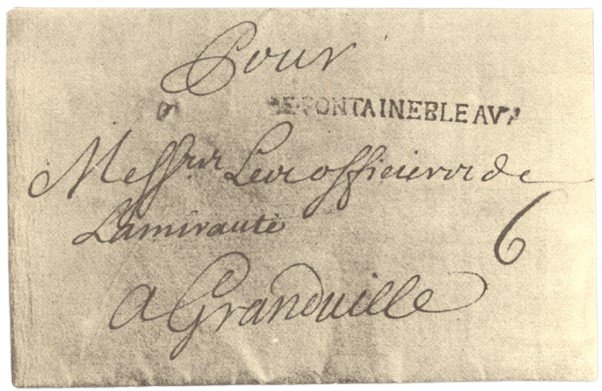 Pour
DE FONTAINEBLEAU
Messrs Les officiers de
Lamirauté
6
a Granduille